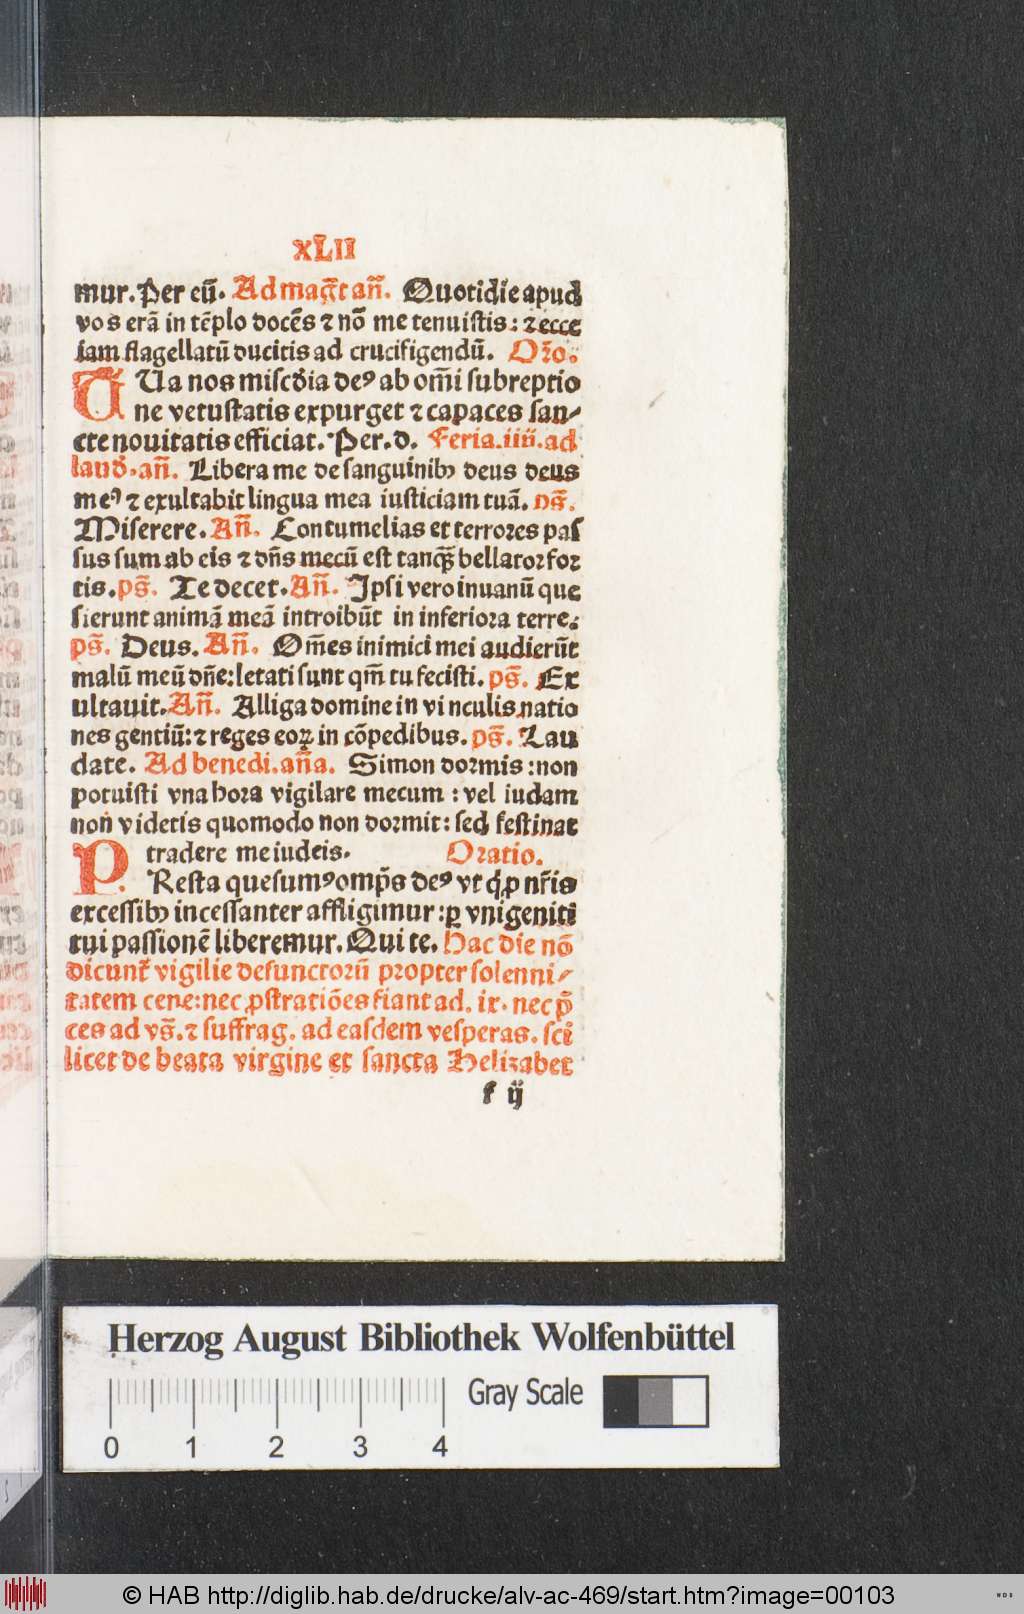 XLII
mur. Per eū. Ad mag̃t añ. Quotidie apud
vos erā in tēplo docēs ⁊ nō me tenuistis: ⁊ ecce
iam flagellatū ducitis ad crucifigendū. Oro.
TUa nos misc̄dia deꝰ ab om̄i subreptio
ne vetustatis expurget ⁊ capaces san⸗
cte nouitatis efficiat. Per. d. Feria. iiii. ad
laud̄. añ. Libera me de sanguinibꝫ deus deus
meꝰ ⁊ exultabit lingua mea iusticiam tuā. ps̄.
Miserere. Añ. Contumelias et terrores pas
sus sum ab eis ⁊ dñs mecū est tanqꝫ bellator for
tis. ps̄. Te decet. Añ. Ipsi vero inuanū que
sierunt animā meā introibūt in inferiora terre.
ps̄. Deus. Añ. Om̄es inimici mei audierūt
malū meū dñe: letati sunt qm̄ tu fecisti. ps̄. Ex
ultauit. Añ. Alliga domine in vinculis natio
nes gentiū: ⁊ reges eoꝝ in cōpedibus. ps̄. Lau
date. Ad benedi. aña. Simon dormis: non
potuisti vna hora vigilare mecum: vel iudam
non videtis quomodo non dormit: sed festinat
tradere me iudeis. Oratio.
PResta quesumꝰ omp̄s deꝰ vt q̄ ꝓ nr̄is
excessibꝫ incessanter affligimur: ꝑ vnigeniti
tui passionē liberemur. Qui te. Hac die nō
dicunt̄ vigilie defunctorū propter solenni⸗
tatem cene: nec ꝓstratiōes fiant ad. ix. nec p̄
ces ad vs̄. ⁊ suffrag. ad easdem vesperas. sci
licet de beata virgine et sancta Helizabet
f ij
Herzog August Bibliothek Wolfenbüttel
Gray Scale
0 1 2 3 4
© HAB http://diglib.hab.de/drucke/alv-ac-469/start.htm?image=00103